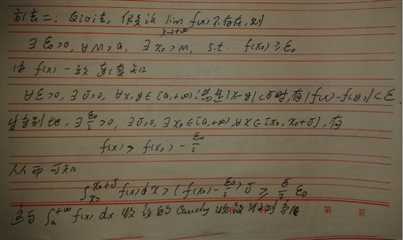 方法二:反证法,假设 lim f(x) 不存在,则
x→+∞
∃ ε₀>0, ∀M>a, ∃ x₀>M, s.t. f(x₀)≥ε₀
由 f(x) 一致连续知
∀ε>0, ∃ δ>0, ∀x,y∈[a,+∞), |x-y|<δ时,有|f(x)-f(y)|<ε.
∃ ε₀/2>0, ∃ δ>0, ∃ x₀∈[a,+∞), ∀x∈[x₀, x₀+δ],有
f(x)>f(x₀)-ε₀/2
从而可知
∫_{x₀}^{x₀+δ} f(x)dx>(f(x₀)-ε₀/2)δ≥δ/2 ε₀
这与 ∫_a^{+∞} f(x) dx 收敛的 Cauchy 收敛
第 页